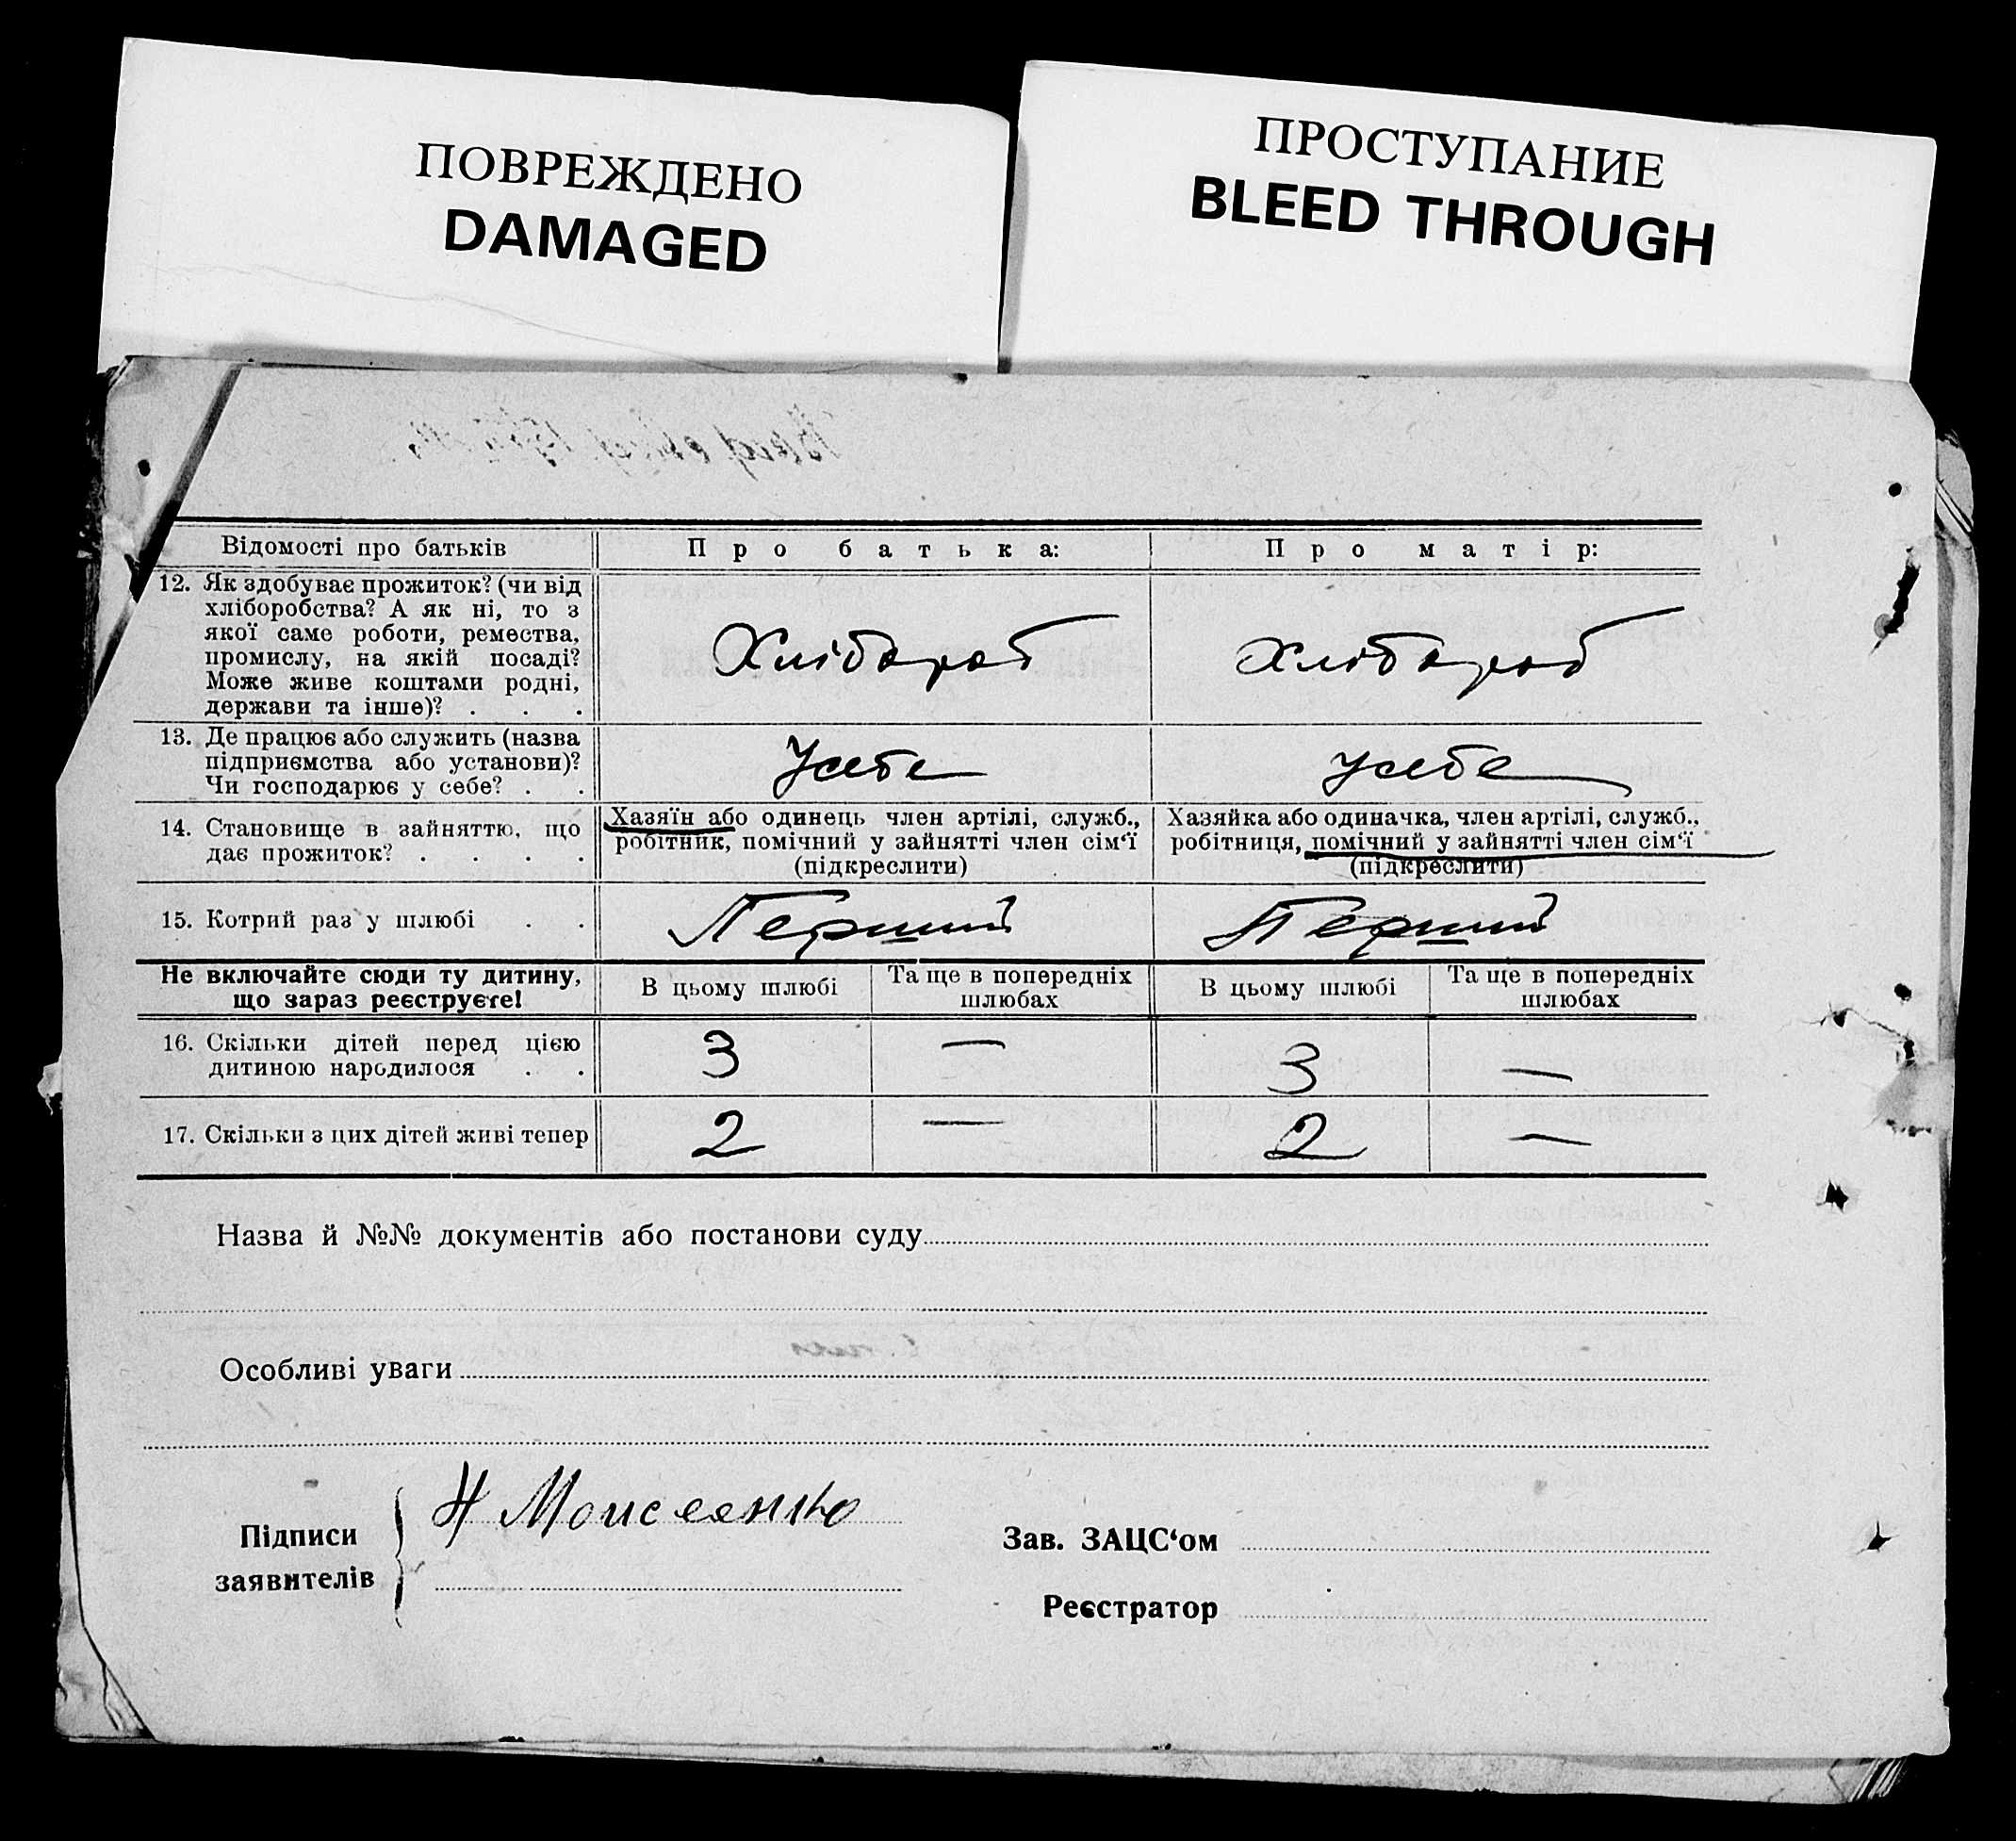 ПОВРЕЖДЕНО
DAMAGED
ПРОСТУПАНИЕ
BLEED THROUGH
Відомості про батьків
Про батька:
Про матір:
12. Як здобуває прожиток? (чи від
хліборобства? А як ні, то з
якої саме роботи, ремества,
промислу, на якій посаді?
Може живе коштами родні,
держави та інше)? . . .
Хлібороб
Хлібороб
13. Де працює або служить (назва
підприємства або установи)?
Чи господарює у себе? . .
У себе
у себе
14. Становище в зайняттю, що
дає прожиток? . . . .
Хазяїн або одинець член артілі, служб.,
робітник, помічний у зайнятті член сім‘ї
(підкреслити)
Хазяйка або одиначка, член артілі, служб.,
робітниця, помічний у зайнятті член сім‘ї
(підкреслити)
15. Котрий раз у шлюбі . .
Перший
Перший
Не включайте сюди ту дитину,
що зараз реєструєте!
В цьому шлюбі
Та ще в попередніх
шлюбах
В цьому шлюбі
Та ще в попередніх
шлюбах
16. Скільки дітей перед цією
дитиною народилося . .
3 — 3 —
17. Скільки з цих дітей живі тепер
2 — 2 —
Назва й №№ документів або постанови суду
Особливі уваги
Підписи
заявителів
Н Моисеенко
Зав. ЗАЦС‘ом
Реєстратор